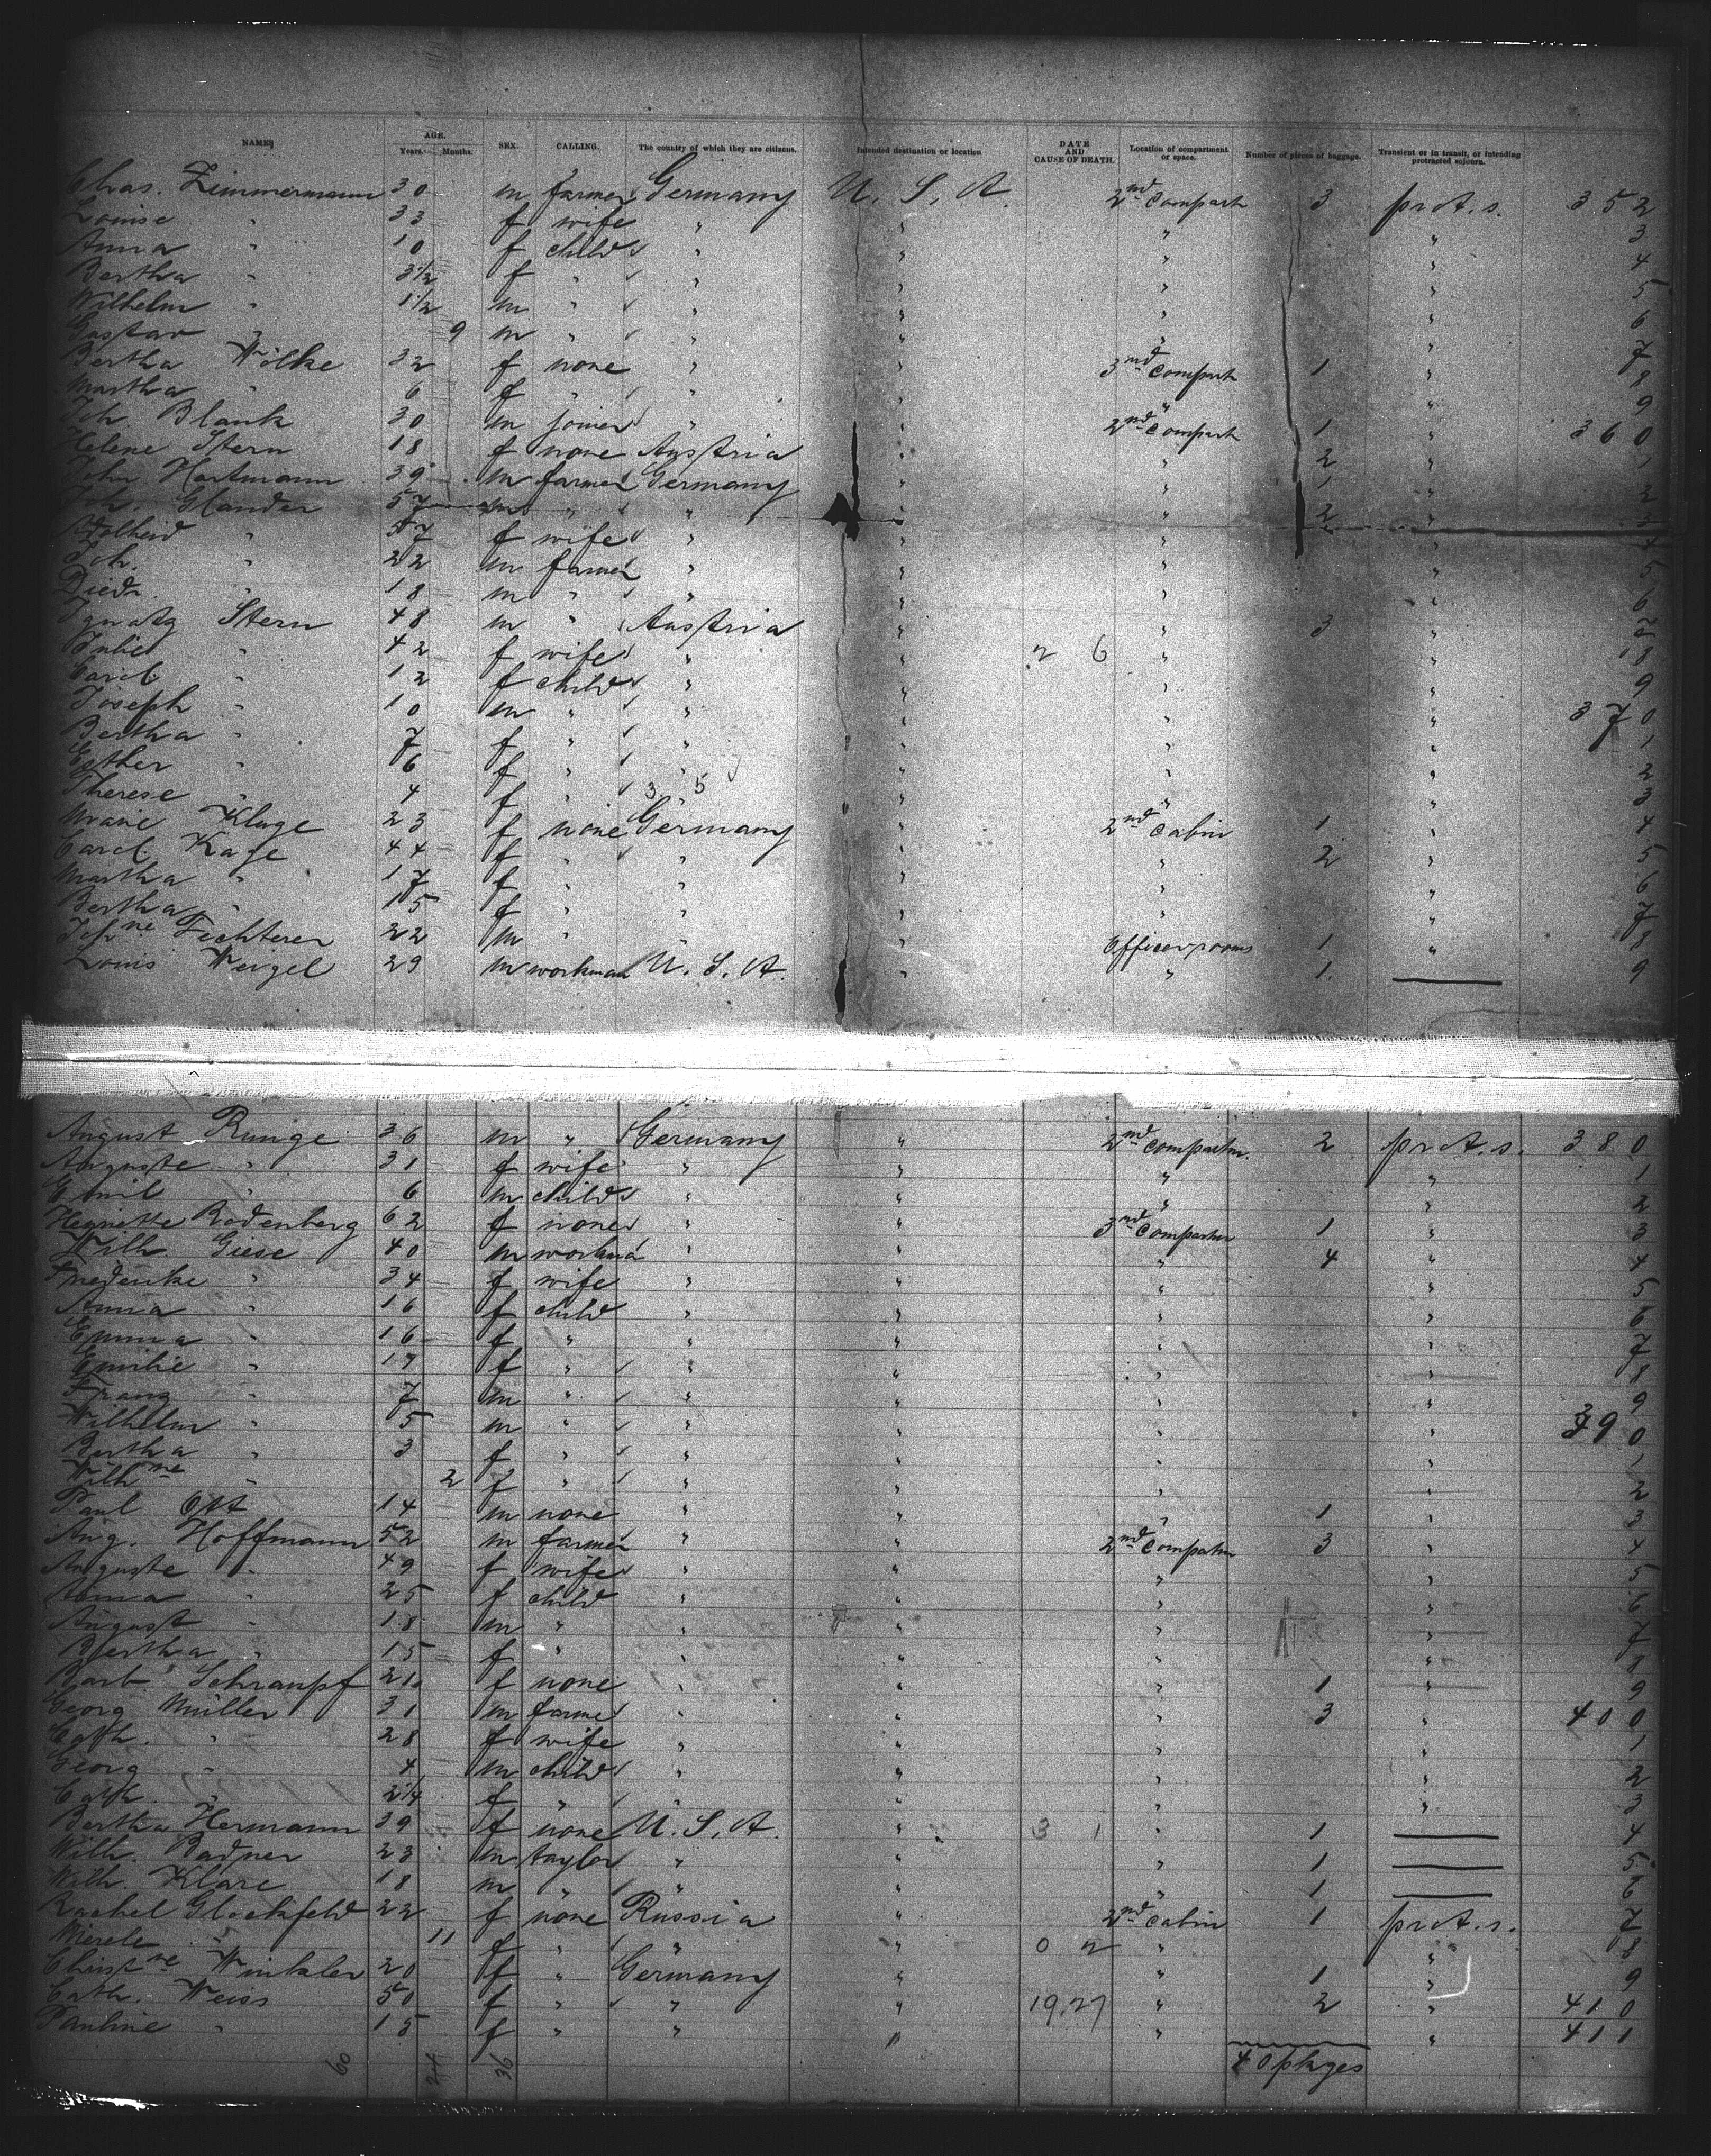 NAMES AGE. Years. Months. SEX. CALLING. The country of which they are citizens. Intended destination or location DATE AND CAUSE OF DEATH. Location of compartment or space. Number of pieces of baggage. Transient or in transit, or intending protracted sojourn.
Chas. Zimmermann 30 m farmer Germany U. S. A. 2nd Compart 3 prot.s. 352
Louise " 33 f wife " " " " 3
Anna " 10 f child " " " " 4
Bertha " 3 1/2 f " " " " " 5
Wilhelm " 1 1/2 m " " " " " 6
Gustav " 9 m " " " " " 7
Bertha Wölke 32 f none " " 3nd Compart 1 " 8
Martha " 6 f " " " " " 9
Joh. Blank 30 m joiner " " 2nd Compart 1 " 360
Helene Stern 18 f none Austria " " 2 " 1
John Hartmann 39 m farmer Germany " " 1 " 2
Joh. Glander 57 m " " " " 2 "
Adelheid " 57 f wife " " " " 4
Joh. " 22 m farmer " " " " 5
Diedr. " 18 m " " " " " 6
Ignatz Stern 48 m " Austria " " 3 "
Julie " 42 f wife " " 2 6 " " 8
Carol. " 12 f child " " " " 9
Joseph " 10 m " " " " " 370
Bertha " 7 f " " " " " 1
Esther " 6 f " " " " " 2
Therese " 4 f " 3 5 " " " 3
Marie Kluge 23 f none Germany " 2nd Cabin 1 " 4
Carol. Kage 44 f " " " " 2 " 5
Martha " 17 f " " " " " 6
Bertha " 15 f " " " " " 7
Johne Fechterer 22 m " " Officer rooms 1 " 8
Louis Weigel 29 m workman U. S. A. " " 1. 9
August Runge 36 m " Germany " 2nd Compartm. 2 prot.s. 380
Auguste " 31 f wife " " " " 1
Emil " 6 m child " " " " 2
Henriette Rodenberg 62 f none " " 3nd Compartm 1 " 3
Wilh. Giese 40 m workma " " " 4 " 4
Friederike " 34 f wife " " " " 5
Anna " 16 f child " " " " 6
Emma " 16 f " " " " " 7
Emilie " 17 f " " " " " 8
Franz " 7 m " " " " " 9
Wilhelm " 5 m " " " " " 390
Bertha " 3 f " " " " " 1
Wilhne " 2 f " " " " " 2
Paul Ott 14 m none " " " 1 " 3
Aug. Hoffmann 52 m farmer " " 2nd Compartm 3 " 4
Auguste " 49 f wife " " " " 5
Anna " 25 f child " " " " 6
August " 18 m " " " " " 7
Bertha " 15 f " " " " " 8
Barb. Schraupf 21 f none " " " 1 " 9
Georg Müller 31 m farmer " " " 3 " 400
Cath. " 28 f wife " " " " 1
Georg " 4 m child " " " " 2
Cath. " 2 1/4 f " " " " " 3
Bertha Hermann 39 f none U. S. A. " 3 1 " 1 4
Wilh. Badner 23 m taylor " " " 1 5
Wilh. Klare 18 m " " " " 1 6
Rachel Glockfeld 22 f none Russia " 2nd Cabin 1 prot.s. 7
Mierele " 11 f " " " 0 2 " " 8
Christne Winkler 20 f " Germany " " 1 " 9
Cath. Weiss 50 f " " " 19,27 " 2 " 410
Pauline " 15 f " " " " " 411
60 24 36 40 pkges